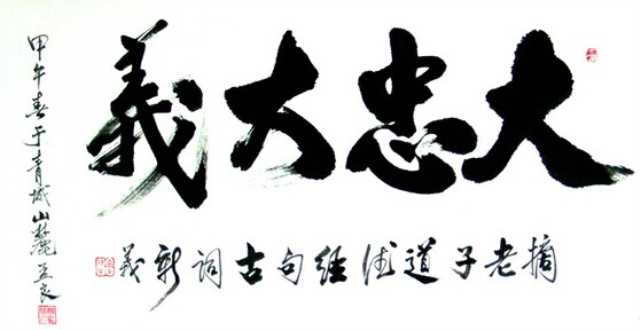 大忠大義
摘老子道德經句古詞新義
甲午春于青城山麓立良